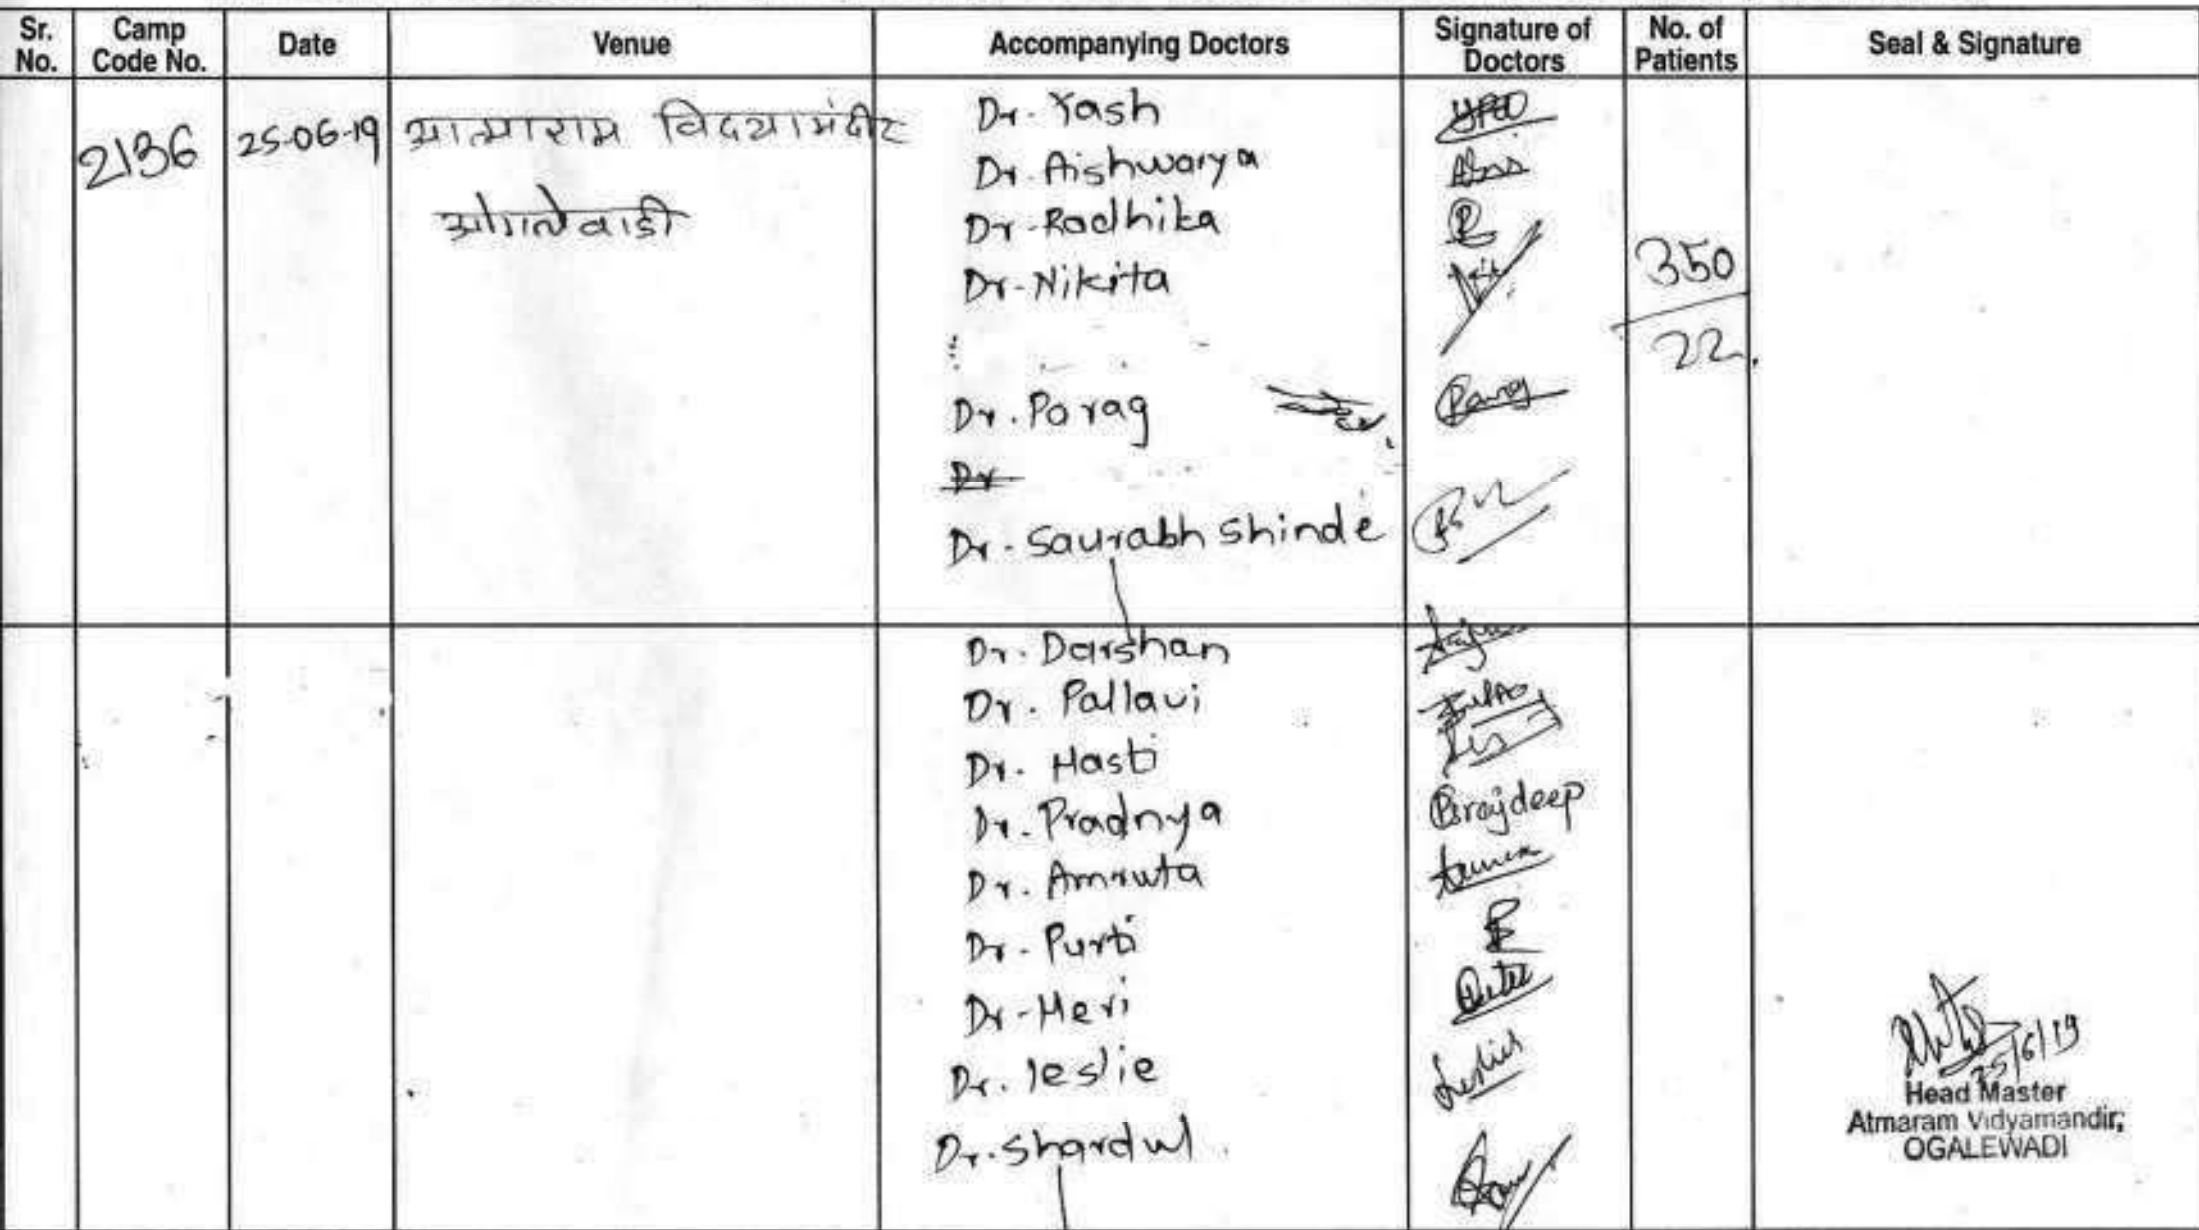 Sr. No. Camp Code No. Date Venue Accompanying Doctors Signature of Doctors No. of Patients Seal & Signature
2136 25-06-19 आत्माराम विदयामंदीर
ओगलेवाडी
Dr. Yash
Dr. Aishwarya
Dr. Radhika
Dr. Nikita
350
22
Dr. Parag Parag
Dr
Dr. Saurabh Shinde
Dr. Darshan
Dr. Pallavi
Dr. Hasti
Dr. Pradnya Pirajdeep
Dr. Amruta
Dr. Purti
Dr. Meri
Dr. leslie Leslie
Dr. Shardul
25/6/19
Head Master
Atmaram Vidyamandir,
OGALEWADI